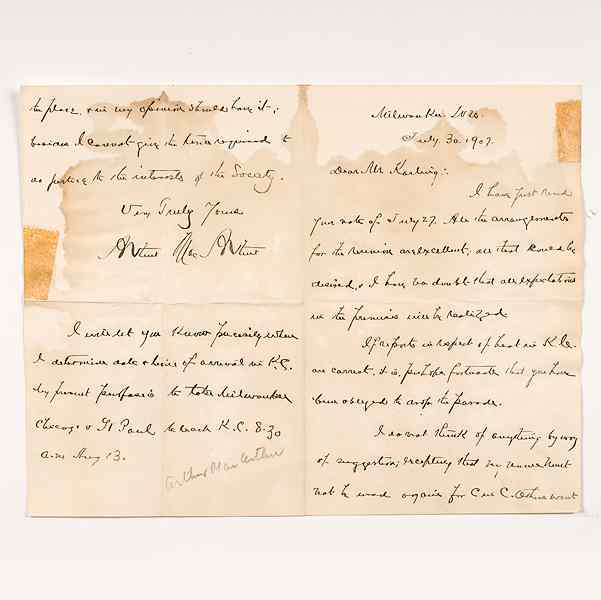 Milwaukee Wis.
July 30. 1907.
Dear Mr
I have just read
your note of July 27. All the arrangements
for the reunion are excellent, all that could be
desired, & I have no doubt that all expectations
in the premises will be realized.
If reports in respect of heat in K.C.
are correct, it is, perhaps fortunate that you have
been obliged to drop the parade.
I do not think of anything by way
of suggestion, excepting that
not be made again for C in C. Others want
the place, & in my opinion should have it;
besides I cannot give the time required to
to the interests of the Society.
Very Truly Yours
Arthur MacArthur
I will let you know precisely when
I determine date & hour of arrival in K.C.
My present purpose is to take Milwaukee
Chicago & St Paul to reach K.C. 8.30
a.m. Aug 13.
Arthur MacArthur